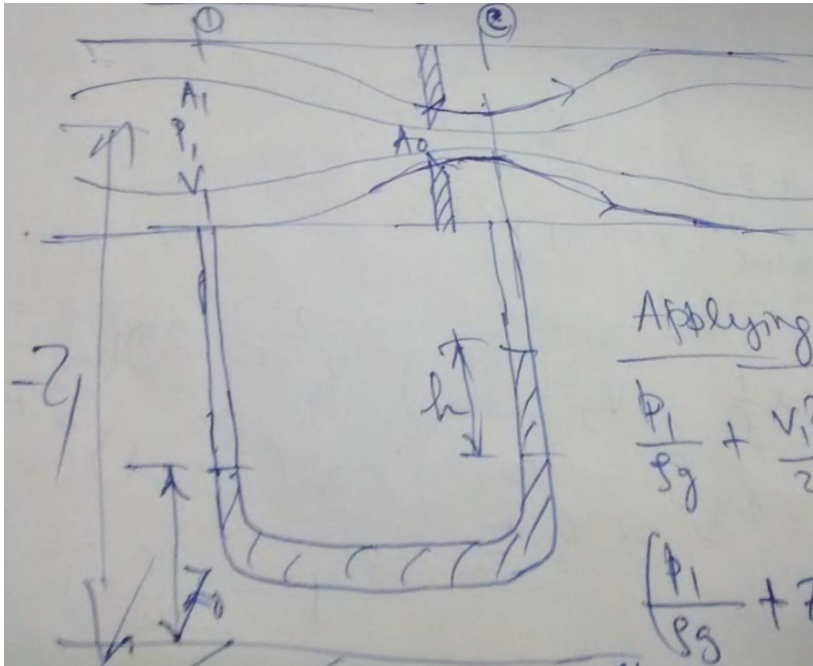 ① ②
A₁
P₁
V
A₀
Z₁
h
Z₀
Applying
P₁/ρg + V₁²/2
(P₁/ρg + Z